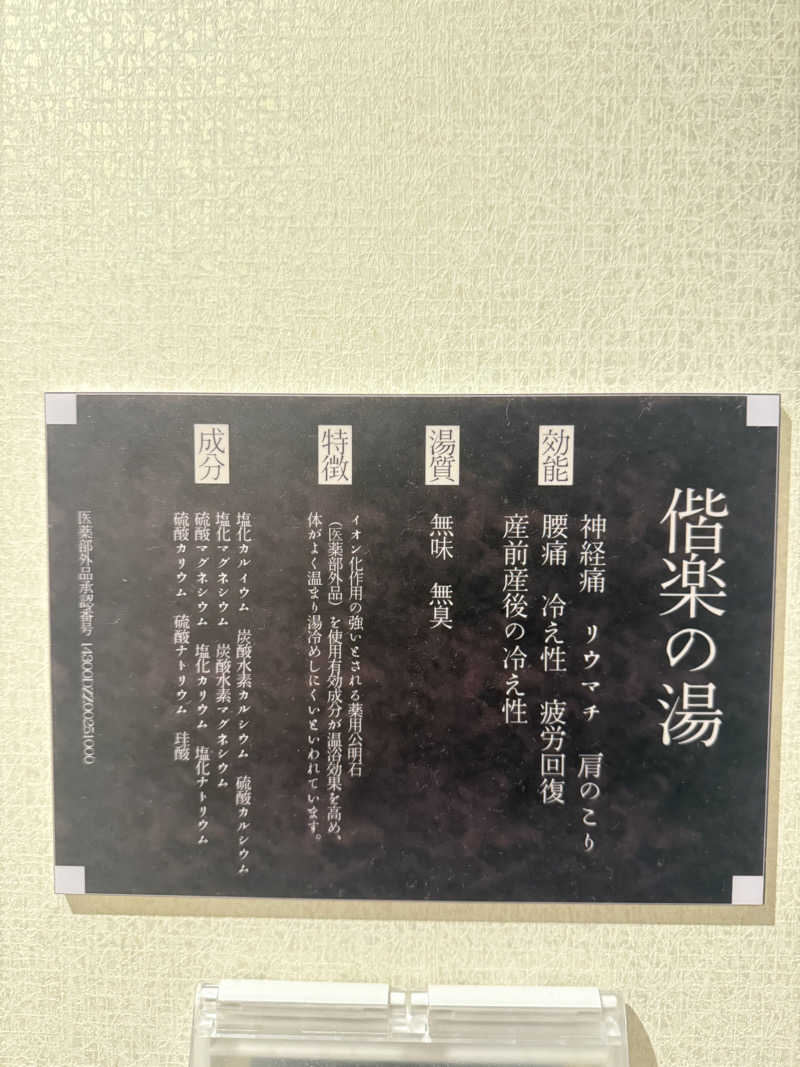 偕楽の湯
効能
神経痛　リウマチ　肩のこり
腰痛　冷え性　疲労回復
産前産後の冷え性
湯質
無味　無臭
特徴
イオン化作用の強いとされる薬用公明石
（医薬部外品）を使用有効成分が温浴効果を高め、
体がよく温まり湯冷めしにくいといわれています。
成分
塩化カルイウム　炭酸水素カルシウム　硫酸カルシウム
塩化マグネシウム　炭酸水素マグネシウム
硫酸マグネシウム　塩化カリウム　塩化ナトリウム
硫酸カリウム　硫酸ナトリウム　珪酸
医薬部外品承認番号 14300DZZ00251000